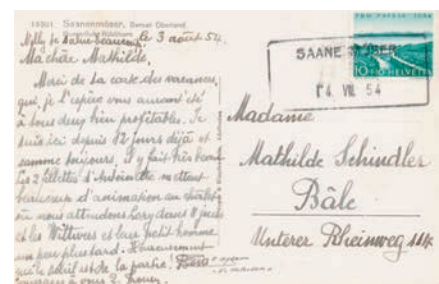 19301. Saanenmöser, Berner Oberland
le 3 août 54.
Ma chère Mathilde,
Merci de ta carte des vacances,
qui, je l'espère vous auront été
à tous deux bien profitables. Je
suis ici depuis 12 jours déjà et
comme toujours, il y fait très beau
Les 2 fillettes d'Antoinette mettent
beaucoup d'animation au chalet
où nous attendons dans 8 jours
et les Wittwers et leur petit homme
un peu plus tard. Heureusement
que le soleil est de la partie!
à vous 2.
PRO PATRIA 1954
10 HELVETIA
SAANENMÖSER
4. VIII 54
Madame
Mathilde Schindler
Bâle
Unterer Rheinweg 114